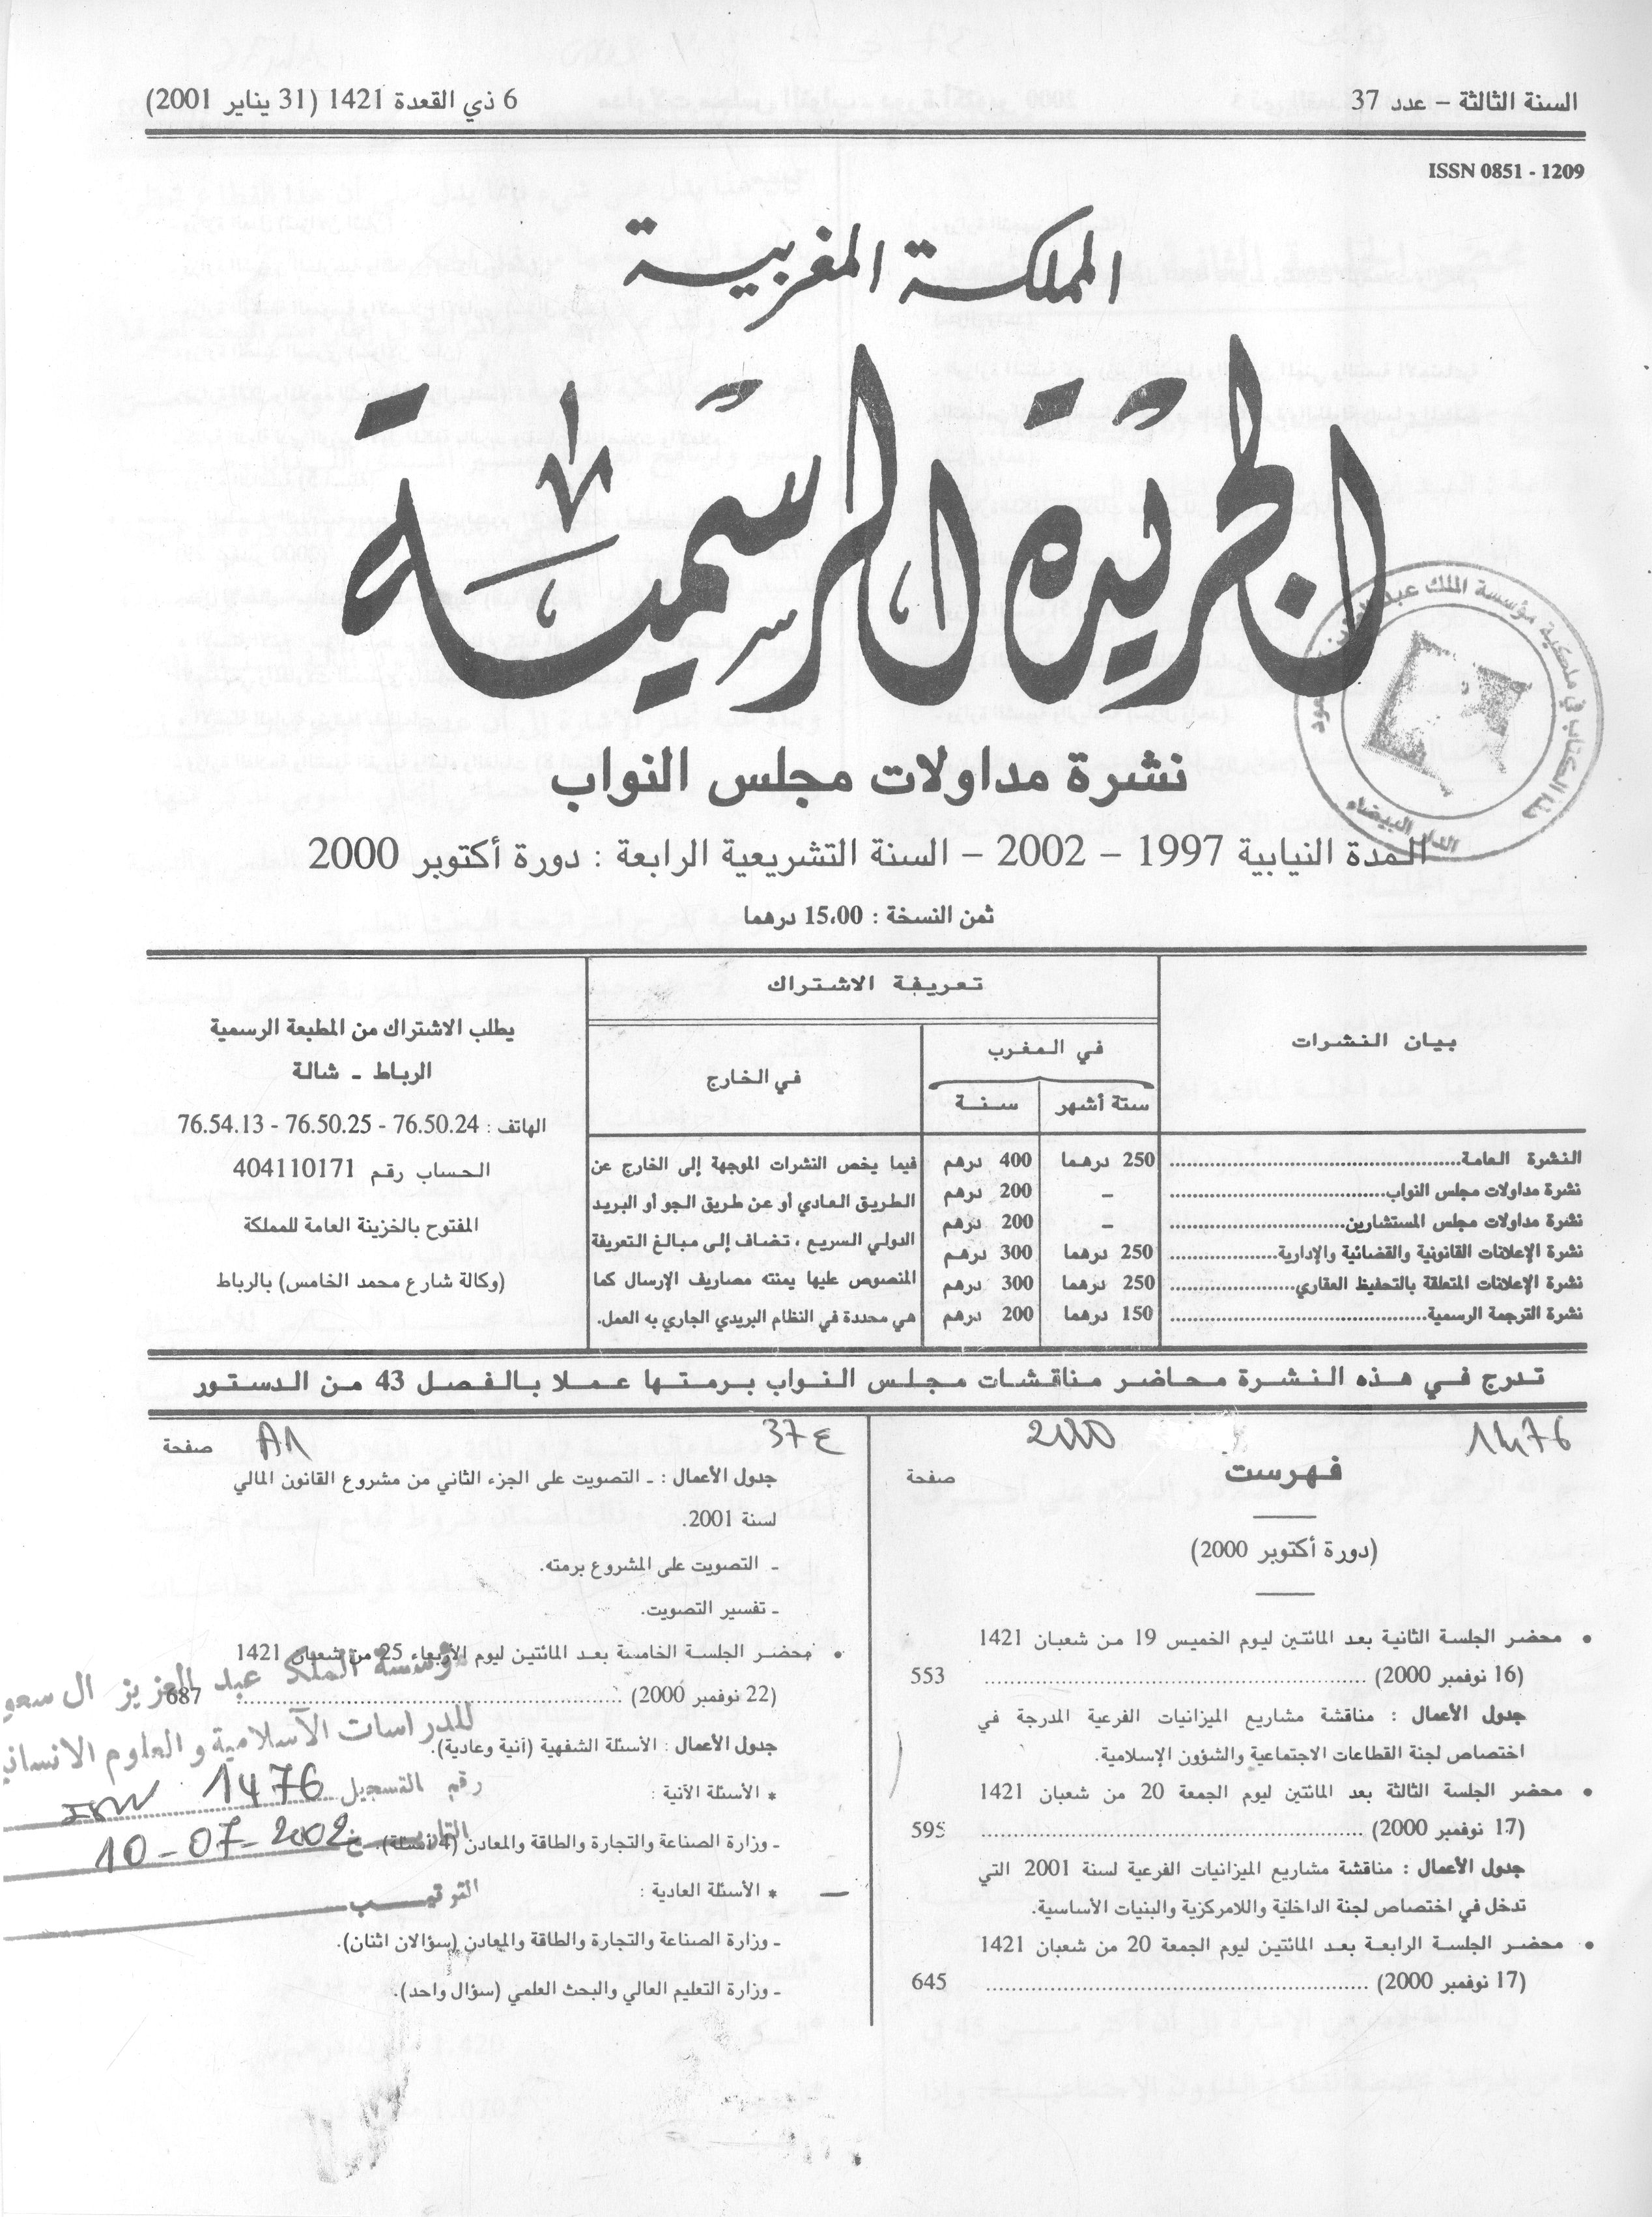 السنة الثالثة – عدد 37
6 ذي القعدة 1421 (31 يناير 2001)
ISSN 0851 - 1209
المملكة المغربية
الجريدة الرسمية
نشرة مداولات مجلس النواب
المدة النيابية 1997 – 2002 – السنة التشريعية الرابعة : دورة أكتوبر 2000
ثمن النسخة : 15،00 درهما
بيان النشرات
تعريفة الاشتراك
في المغرب
ستة أشهر
سنة
في الخارج
النشرة العامة 250 درهما 400 درهم
نشرة مداولات مجلس النواب – 200 درهم
نشرة مداولات مجلس المستشارين – 200 درهم
نشرة الإعلانات القانونية والقضائية والإدارية 250 درهما 300 درهم
نشرة الإعلانات المتعلقة بالتحفيظ العقاري 250 درهما 300 درهم
نشرة الترجمة الرسمية 150 درهما 200 درهم
فيما يخص النشرات الموجهة إلى الخارج عن
الطريق العادي أو عن طريق الجو أو البريد
الدولي السريع ، تضاف إلى مبالغ التعريفة
المنصوص عليها يمنته مصاريف الإرسال كما
هي محددة في النظام البريدي الجاري به العمل.
يطلب الاشتراك من المطبعة الرسمية
الرباط ـ شالة
الهاتف : 76.50.24 - 76.50.25 - 76.54.13
الحساب رقم 404110171
المفتوح بالخزينة العامة للمملكة
(وكالة شارع محمد الخامس) بالرباط
تدرج في هذه النشرة محاضر مناقشات مجلس النواب برمتها عملا بالفصل 43 من الدستور
1476
2000
ع 37
A1
فهرست
صفحة
(دورة أكتوبر 2000)
• محضر الجلسة الثانية بعد المائتين ليوم الخميس 19 من شعبان 1421
(16 نوفمبر 2000) 553
جدول الأعمال : مناقشة مشاريع الميزانيات الفرعية المدرجة في
اختصاص لجنة القطاعات الاجتماعية والشؤون الإسلامية.
• محضر الجلسة الثالثة بعد المائتين ليوم الجمعة 20 من شعبان 1421
(17 نوفمبر 2000) 595
جدول الأعمال : مناقشة مشاريع الميزانيات الفرعية لسنة 2001 التي
تدخل في اختصاص لجنة الداخلية واللامركزية والبنيات الأساسية.
• محضر الجلسة الرابعة بعد المائتين ليوم الجمعة 20 من شعبان 1421
(17 نوفمبر 2000) 645
صفحة
جدول الأعمال : ـ التصويت على الجزء الثاني من مشروع القانون المالي
لسنة 2001.
ـ التصويت على المشروع برمته.
ـ تفسير التصويت.
• محضر الجلسة الخامسة بعد المائتين ليوم الأربعاء 25 من شعبان 1421
(22 نوفمبر 2000) 687
جدول الأعمال : الأسئلة الشفهية (آنية وعادية).
* الأسئلة الآنية :
ـ وزارة الصناعة والتجارة والطاقة والمعادن (4 أسئلة).
* الأسئلة العادية :
ـ وزارة الصناعة والتجارة والطاقة والمعادن (سؤالان اثنان).
ـ وزارة التعليم العالي والبحث العلمي (سؤال واحد).
مؤسسة الملك عبد العزيز ال سعو
للدراسات الاسلامية و العلوم الانساني
رقم التسجيل 1476
التاريخ 10-07-2002
التوقيـــب
الدار البيضاء